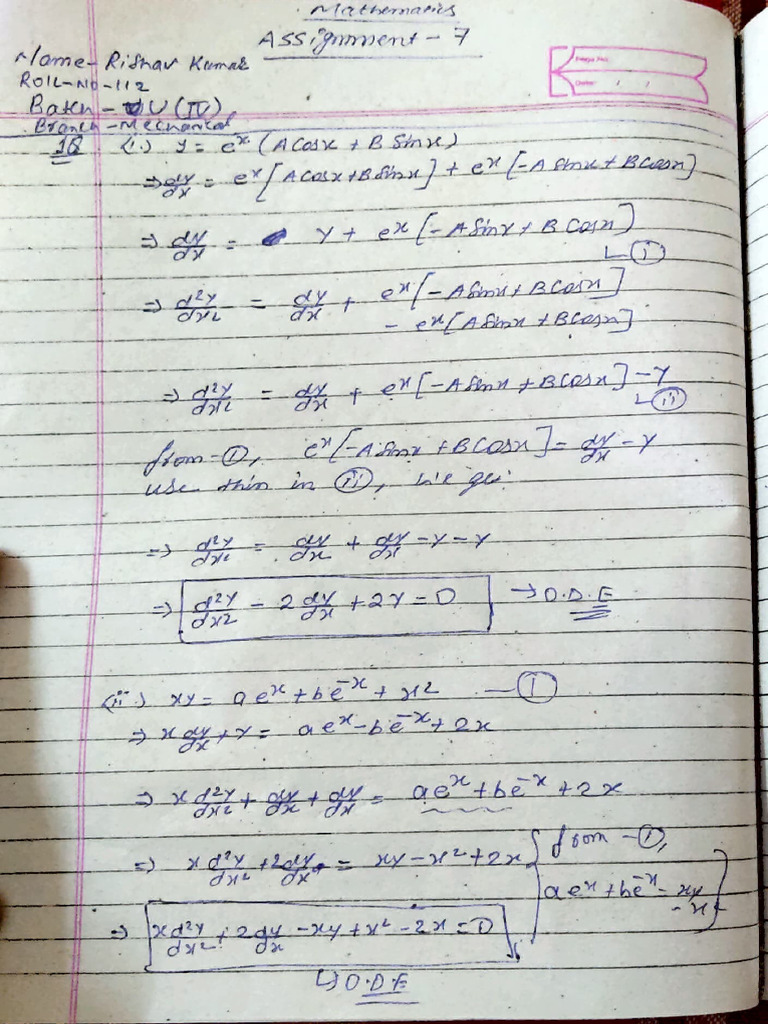 Mathematics
Assignment - 7
Name - Rishav Kumar
ROLL-NO-112
Batch - U (IV)
Branch - Mechanical
1Q (i.) y = e^x (A cosx + B Sinx)
⇒ dy/dx = e^x [A cosx + B sinx] + e^x [-A sinx + B cosx]
⇒ dy/dx = y + e^x [-A sinx + B cosx]
(i)
⇒ d²y/dx² = dy/dx + e^x [-A sinx + B cosx]
- e^x [A sinx + B cosx]
⇒ d²y/dx² = dy/dx + e^x [-A sinx + B cosx] - y
(ii)
from - ①, e^x [-A sinx + B cosx] = dy/dx - y
use this in (ii), we get
⇒ d²y/dx² = dy/dx + dy/dx - y - y
⇒ d²y/dx² - 2 dy/dx + 2y = 0 → O.D.E
(ii.) xy = ae^x + be^-x + x² — ①
⇒ x dy/dx + y = ae^x - be^-x + 2x
⇒ x d²y/dx² + dy/dx + dy/dx = ae^x + be^-x + 2x
⇒ x d²y/dx² + 2 dy/dx = xy - x² + 2x { from - ①,
ae^x + be^-x = xy
- x² }
⇒ x d²y/dx² + 2 dy/dx - xy + x² - 2x = 0
↳ O.D.E